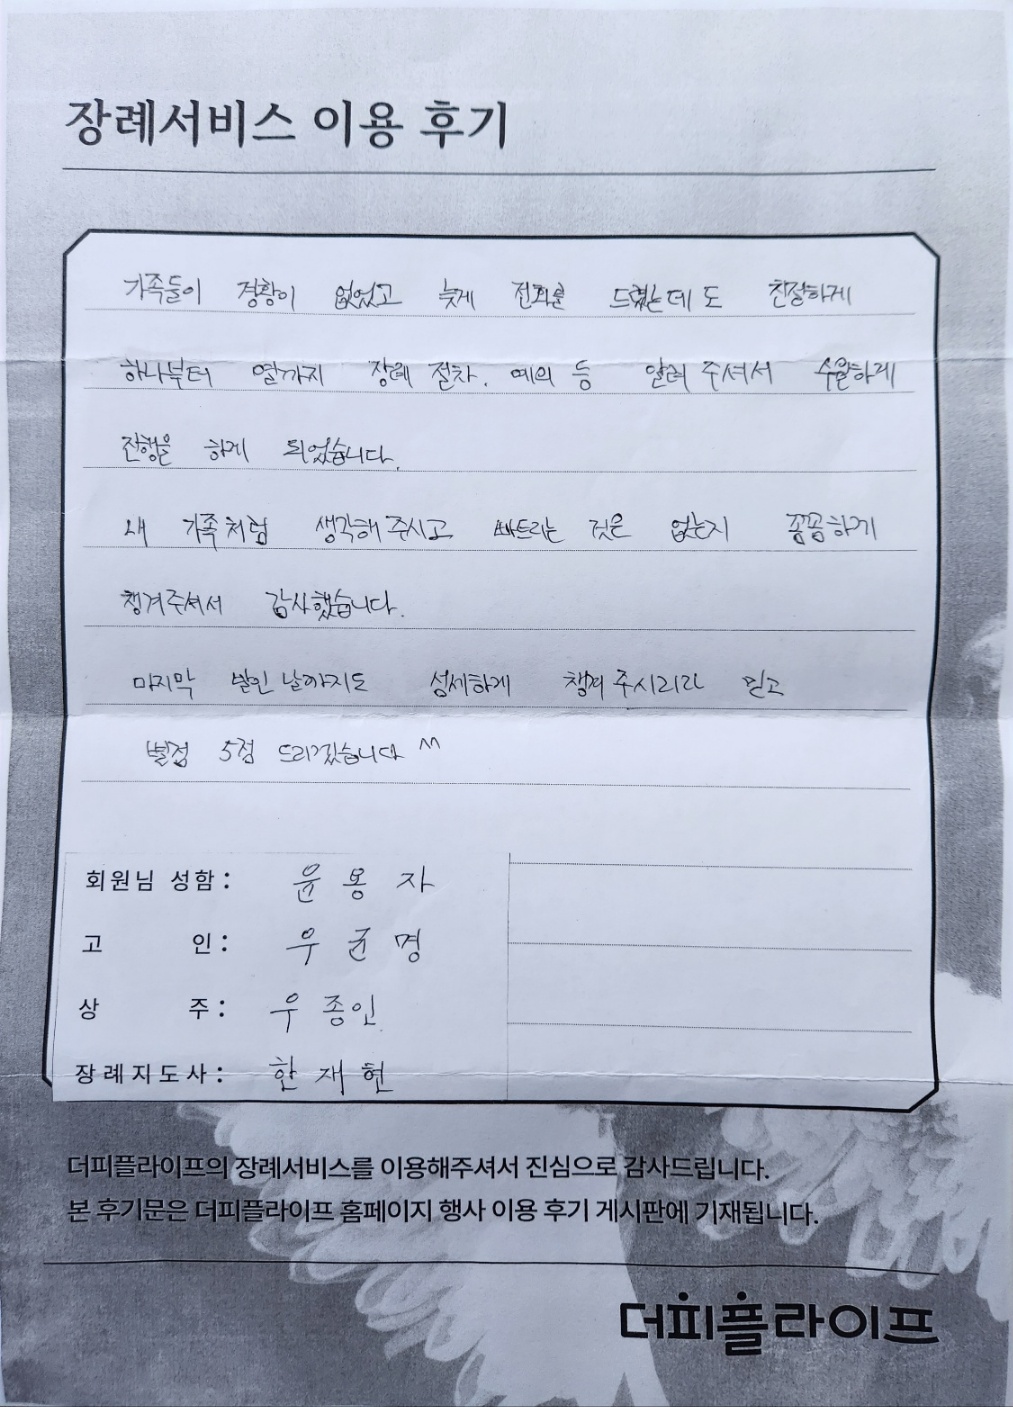 장례서비스 이용 후기
가족들이 경황이 없었고 늦게 전화를 드렸는데도 친절하게
하나부터 열까지 장례 절차, 예의 등 알려 주셔서 수월하게
진행을 하게 되었습니다.
내 가족처럼 생각해 주시고 빠트리는 것은 없는지 꼼꼼하게
챙겨주셔서 감사했습니다.
마지막 발인 날까지도 섬세하게 챙겨 주시리라 믿고
별점 5점 드리겠습니다 ^^
회원님 성함: 윤봉자
고 인: 우균명
상 주: 우종인
장례지도사: 한재헌
더피플라이프의 장례서비스를 이용해주셔서 진심으로 감사드립니다.
본 후기문은 더피플라이프 홈페이지 행사 이용 후기 게시판에 기재됩니다.
더피플라이프